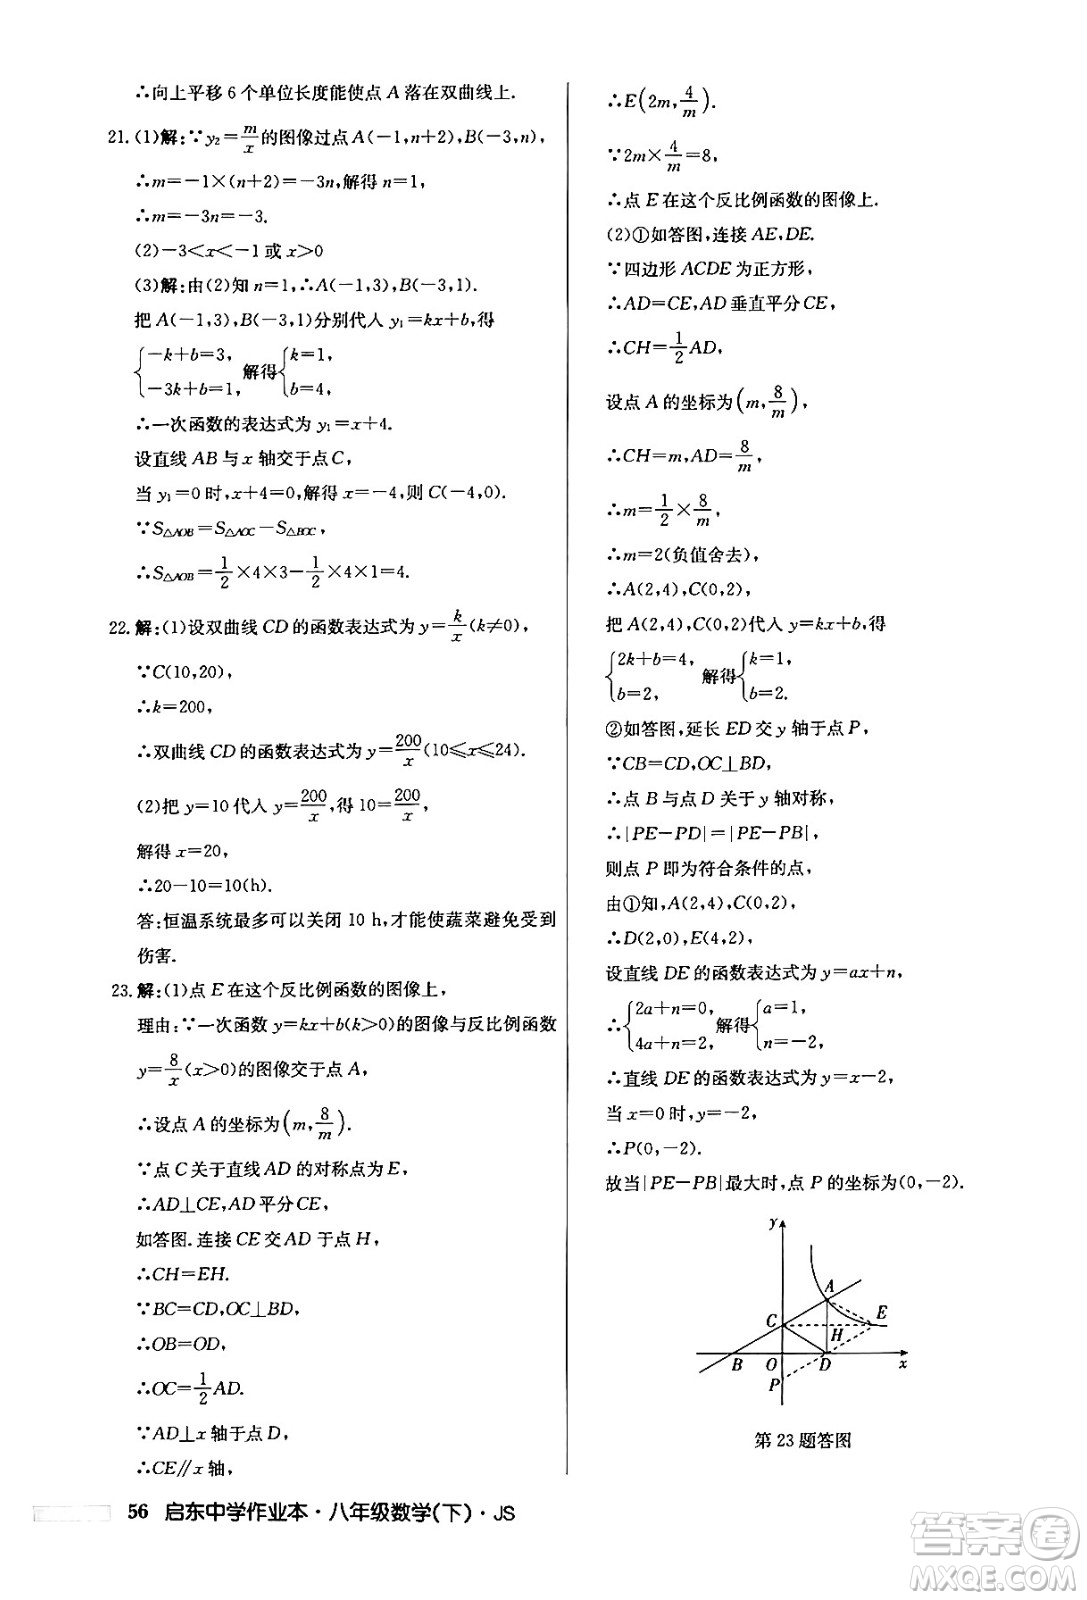 ∴向上平移 6 个单位长度能使点 A 落在双曲线上.
21. (1)解:∵y₂=m/x的图像过点 A(-1,n+2),B(-3,n),
∴m=-1×(n+2)=-3n,解得 n=1,
∴m=-3n=-3.
(2)-3<x<-1 或 x>0
(3)解:由(2)知 n=1,∴A(-1,3),B(-3,1).
把 A(-1,3),B(-3,1)分别代人 y₁=kx+b,得
{-k+b=3, -3k+b=1, 解得{k=1, b=4.
∴一次函数的表达式为 y₁=x+4.
设直线 AB 与 x 轴交于点 C,
当 y₁=0 时,x+4=0,解得 x=-4,则 C(-4,0).
∵S△AOB=S△AOC-S△BOC,
∴S△AOB=1/2×4×3-1/2×4×1=4.
22. 解:(1)设双曲线 CD 的函数表达式为 y=k/x(k≠0),
∵C(10,20),
∴k=200,
∴双曲线 CD 的函数表达式为 y=200/x(10≤x≤24).
(2)把 y=10 代人 y=200/x,得 10=200/x,
解得 x=20,
∴20-10=10(h).
答:恒温系统最多可以关闭 10 h,才能使蔬菜避免受到
伤害.
23. 解:(1)点 E 在这个反比例函数的图像上,
理由:∵一次函数 y=kx+b(k>0)的图像与反比例函数
y=8/x(x>0)的图像交于点 A,
∴设点 A 的坐标为(m,8/m).
∵点 C 关于直线 AD 的对称点为 E,
∴AD⊥CE,AD 平分 CE,
如答图.连接 CE 交 AD 于点 H,
∴CH=EH.
∵BC=CD,OC⊥BD,
∴OB=OD,
∴OC=1/2AD.
∵AD⊥x 轴于点 D,
∴CE∥x 轴,
∴E(2m,4/m).
∵2m×4/m=8,
∴点 E 在这个反比例函数的图像上.
(2)①如答图,连接 AE,DE.
∵四边形 ACDE 为正方形,
∴AD=CE,AD 垂直平分 CE,
∴CH=1/2AD,
设点 A 的坐标为(m,8/m),
∴CH=m,AD=8/m,
∴m=1/2×8/m,
∴m=2(负值舍去),
∴A(2,4),C(0,2),
把 A(2,4),C(0,2)代人 y=kx+b,得
{2k+b=4, b=2, 解得{k=1, b=2.
②如答图,延长 ED 交 y 轴于点 P,
∵CB=CD,OC⊥BD,
∴点 B 与点 D 关于 y 轴对称,
∴|PE-PD|=|PE-PB|,
则点 P 即为符合条件的点,
由①知,A(2,4),C(0,2),
∴D(2,0),E(4,2),
设直线 DE 的函数表达式为 y=ax+n,
∴{2a+n=0, 4a+n=2, 解得{a=1, n=-2,
∴直线 DE 的函数表达式为 y=x-2,
当 x=0 时,y=-2,
∴P(0,-2).
故当|PE-PB|最大时,点 P 的坐标为(0,-2).
y
A
C
E
H
B O D x
P
第 23 题答图
56 启东中学作业本·八年级数学(下)·JS
答案圈
MXQE.COM